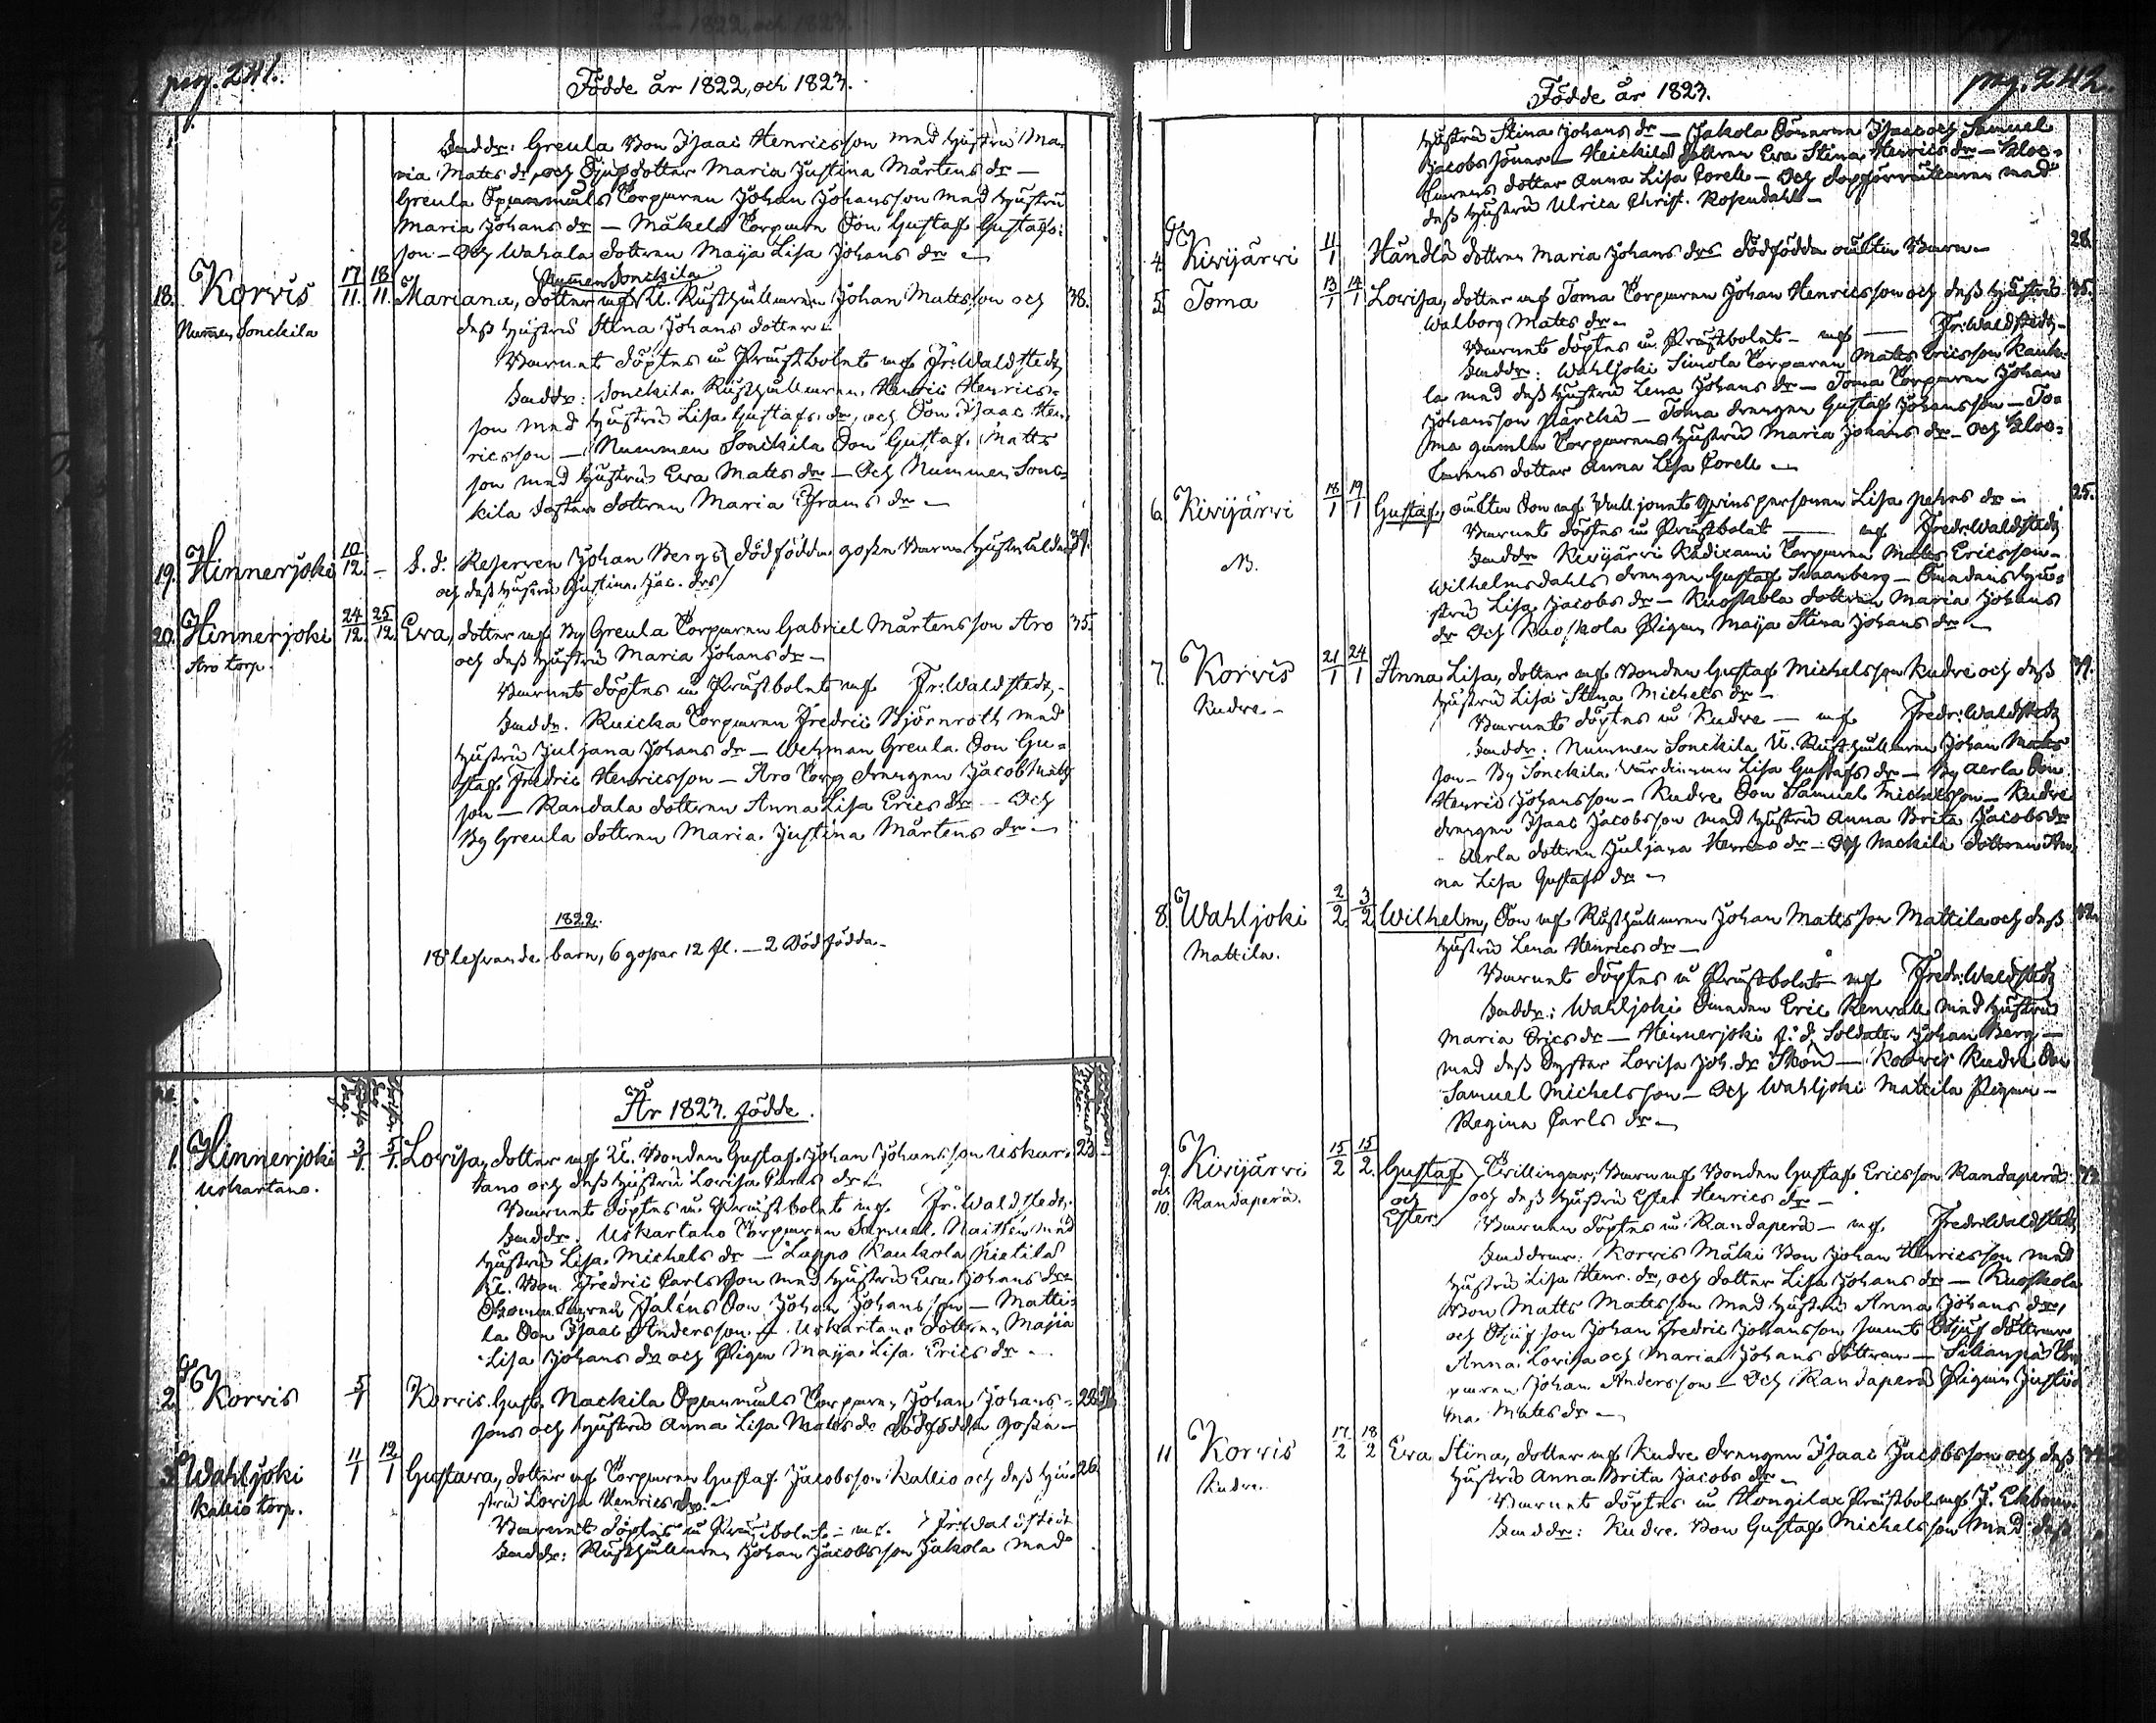 pag. 241.
Födde år 1822, och 1823.
Faddr: Greula Bon Isaac Henricsson med Hustru Ma-
ria Matts dr, och Styfdotter Maria Justina Mårtens dr —
Greula Torparen Johan Johansson med Hustru
Maria Johans dr — Mäkelä Torparen Son Gustaf Gustafs-
son — Och Wahala dottren Maija Lisa Johans dr —
18. Korvis 17/11. 18/11. Mariana, dotter af U. Rusthållaren Johan Mattsson och 38.
Nummen Sonckila
Nummen Sonckila
dess Hustru Stina Johans dotter
Barnet döptes i Prästbolet af Fr: Waldstedt
Faddr: Sonckila Rusthållaren Henric Henrics-
son med Hustru Lisa Gustafs dr, och Son Isaac Hen-
ricsson — Nummen Sonckila Son Gustaf Matts
son med Hustru Eva Matts dr — Och Nummen Sonc-
kila dottren Maria Efraims dr —
19. Hinnerjoki 10/12. — S. d. Reserven Johan Bergs dödfödda gosse Barn 39.
och dess Hustru Justina Jac. drs
20. Hinnerjoki 24/12. 25/12. Eva, dotter af By Greula Torparen Gabriel Mårtensson Aro 35.
Aro torp.
och dess Hustru Maria Johans dr —
Barnet döptes i Prästbolet af Fr: Waldstedt —
Faddr. Ruicka Torparen Fredric Björnroth med
Hustru Juljana Johans dr — Wehman Greula Son Gu-
staf Fredric Henricsson — Aro Torp drengen Jacob Matts
son — Randala dottren Anna Lisa Erics dr — Och
By Greula dottren Maria Justina Mårtens dr —
1822.
18 lefvande barn, 6 gossar 12 fl. — 2 Dödfödda —
År 1823. födde.
1. Hinnerjoki 3/1. 5/1. Lovisa, dotter af U. Bonden Gustaf Johan Johansson Uskar- 23.
Uskartano.
tano och dess Hustru Lovisa Carls dr —
Barnet döptes i Prästbolet af Fr. Waldstedt.
Faddr. Uskartano Torparen Samuel Naitti med
Hustru Lisa Michels dr — Lappo Kaukola Kietilä
U. Bon. Fredric Carlsson med Hustru Eva Johans dr
Son Johan Johansson — Matti-
la Son Isaac Andersson — Uskartano dottren Maja
Lisa Johans dr och Pigan Maija Lisa Erics dr —
2. Korvis 5/1 Korvis Nackila Torparen Johan Johans-
sons och Hustru Anna Lisa Matts dr dödfödda gosse —
3. Wahljoki 11/1 12/1 Gustava, dotter af Torparen Gustaf Jacobsson Kallio och dess Hu- 26.
Kallio torp.
stru Lovisa Henrics dr. —
Barnet döptes i Prästbolet — af. Fr: Waldstedt
Faddr: Rusthållaren Johan Jacobsson Jakola med
pag. 242.
Födde år 1823.
Hustru Stina Johans dr — Jakola Sönerna Isaac och Samuel
Jacobs söner — Heickilä dottren Eva Stina Henrics dr — Kloc-
karens dotter Anna Lisa Corell — Och
dess Hustru Ulrica Christ. Rosendahl —
4. Kivijärvi 11/1 Händlä dottren Maria Johans drs dödfödda oäkta Barn — 28.
5. Toma 13/1 14/1 Lovisa, dotter af Toma Torparen Johan Henricsson och dess Hustru 35.
Walborg Matts dr —
Barnet döptes i Prästbolet — af — Fr: Waldstedt —
Faddr: Wahljoki Simola Torparen Matts Ericsson Kauko-
la med dess Hustru Lena Johans dr — Toma Torparen Johan
Johansson — Toma drengen Gustaf Johansson — To-
ma gamla Torparens Hustru Maria Johans dr — Och Kloc-
karens dotter Anna Lisa Corell —
6. Kivijärvi 18/1 19/1 Gustaf, oäkta Son af Lisa dr — 25.
NB.
Barnet döptes i Prästbolet — af Fredr: Waldstedt
Faddr Kivijärvi Torparen Matts Ericsson —
Wilhelmsdahls drengen Gustaf Svanberg — Smedens Hu-
stru Lisa Jacobs dr — Kuoskola dottren Maria Johans
dr Och Kuoskola Pigan Maija Stina Johans dr —
7. Korvis 21/1 24/1 Anna Lisa, dotter af Bonden Gustaf Michelsson Kudre och dess 39.
Kudre —
Hustru Lisa Stina Michels dr —
Barnet döptes i Kudre — af Fredr: Waldstedt
Faddr: Nummen Sonckila U. Rusthållaren Johan Matts
son — By Sonckila Lisa Gustafs dr — By Aerla Son
Henric Johansson — Kudre Son Samuel Michelsson — Kudre
drengen Isaac Jacobsson med Hustru Anna Brita Jacobs dr
— Aerla dottren Juljana Henrics dr — Och Nackila dottren An-
na Lisa Gustafs dr —
8. Wahljoki 2/2. 3/2 Wilhelm, Son af Rusthållaren Johan Mattsson Mattila och dess
Mattila.
Hustru Lena Henrics dr —
Barnet döptes i Prästbolet af Fredr: Waldstedt
Faddr: Wahljoki Smeden Eric Renvall med Hustru
Maria Erics dr — Heinerjoki f. d. Soldaten Johan Berg —
med dess Syster Lovisa Joh. dr — Korvis Kudre Son
Samuel Michelsson — Och Wahljoki Mattila Pigan —
Regina Carls dr —
9. Kivijärvi 15/2 15/2. Gustaf Tvillingar, Barn af Bonden Gustaf Ericsson Randaperä
och 10. Randaperä.
och Ester och dess Hustru Ester Henrics dr —
Barnen döptes i Randaperä — af. Fredr: Waldstedt
Faddrar: Korvis Mäki Bon Johan Henricsson med
Hustru Lisa Henr. dr, och dotter Lisa Johans dr — Kuoskola
Bon Matts Mattsson med Hustru Anna Johans dr,
och Styfson Johan Fredric Johansson samt Styf döttrar
Anna Lovisa och Maria Johans döttrar — Sillanpää Tor-
paren Johan Andersson — Och Randaperä Pigan Justi-
na Matts dr —
11 Korvis 17/2 18/2 Eva Stina, dotter af Kudre drengen Isaac Jacobsson och dess
Kudre.
Hustru Anna Brita Jacobs dr —
Barnet döptes i Hongilax Prästbol af J. Ekbom.
Faddr: Kudre Bon Gustaf Michelsson med dess